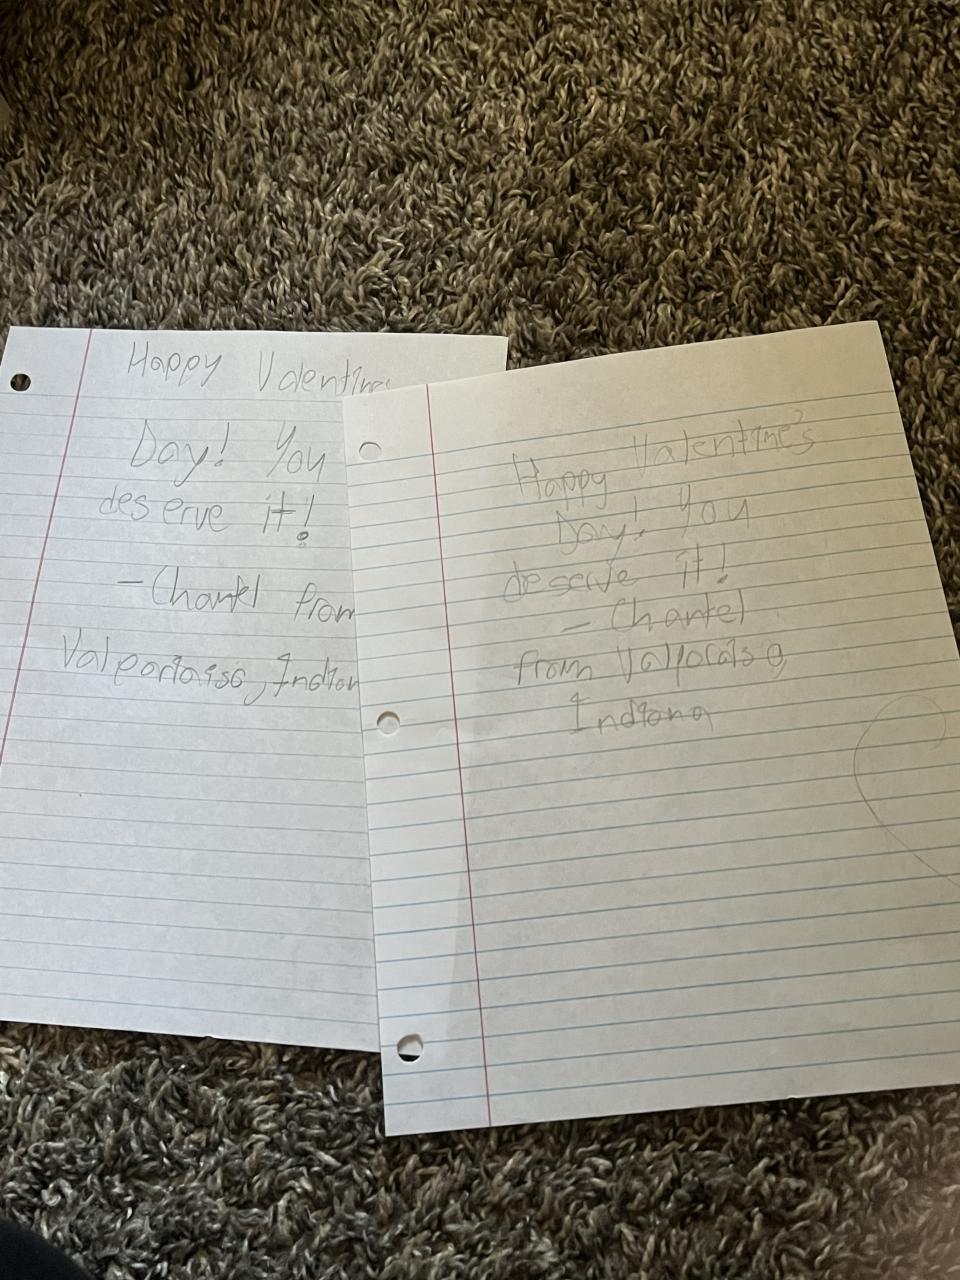 Happy Valentine
Day! You
deserve it!
- Chantel from
Valpariaso, Indian
Happy Valentine's
Day! You
deserve it!
- Chantel
from Valporaiso,
Indiana